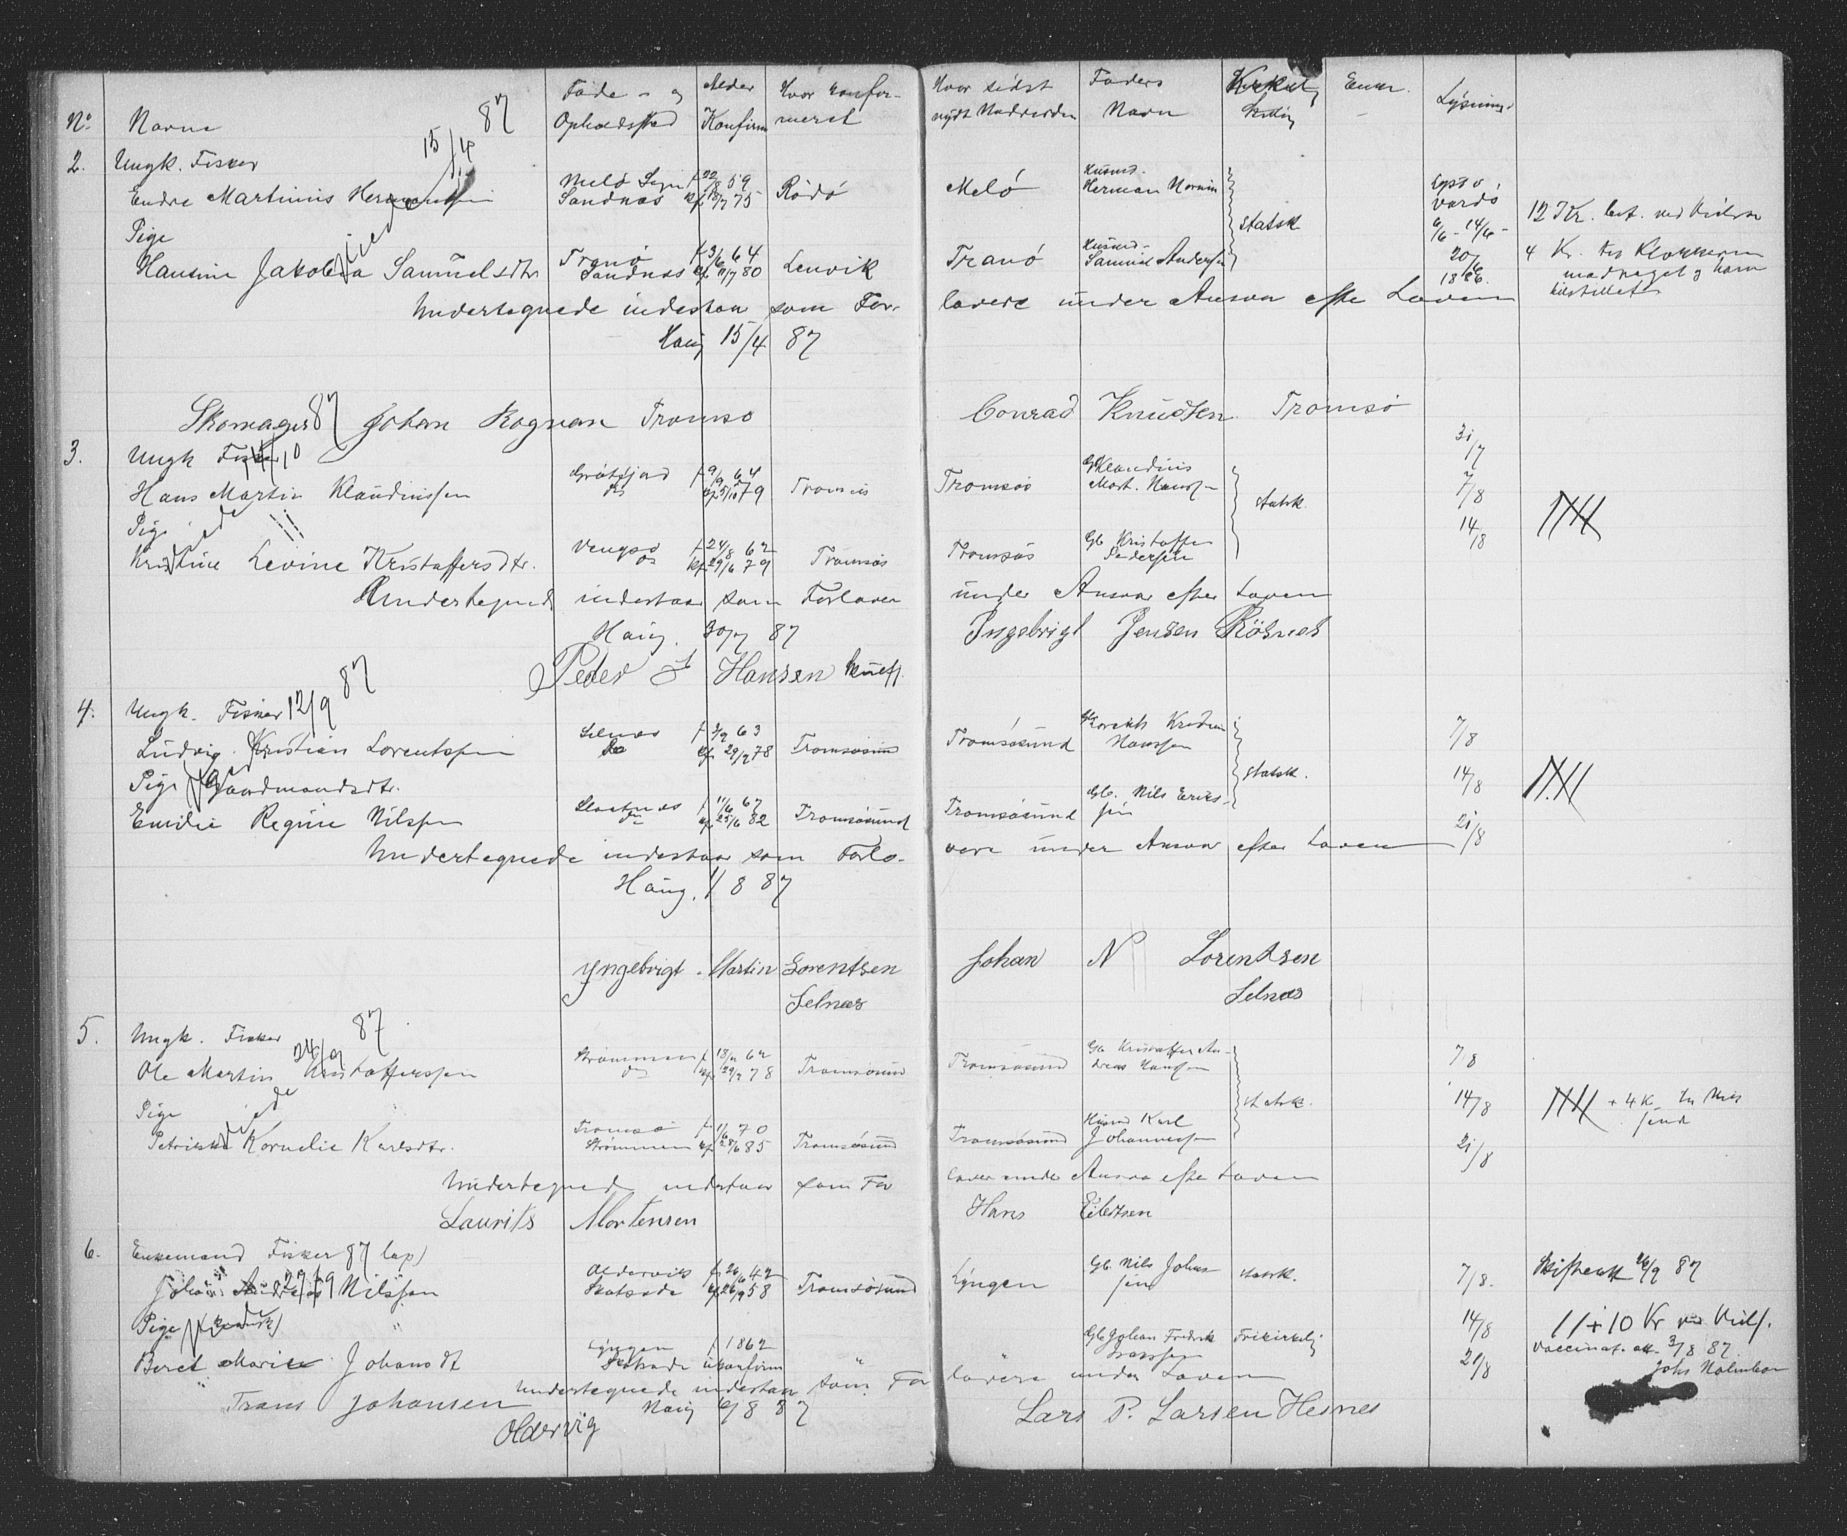 No. Navn
Føde- og Opholdssted
Alder Konfirm
Hvor konfor-
meret
Hvor sidst
nydt Nadverden
Faders
Navn
Kirkel.
Stilling
Enke.
Lysning
15/4 87
2. Ungk. Fisker
Endre Martinus Hermansen
Melø Sogn
Sandnæs
f 22/8 59
Kf 75
Rødø
Melø
Husmd.
Herman
Statsk
Lyst i
Vardø
6/6 - 14/6 -
20/6
1886.
12 Kr. bet. ved Vielsen
4 Kr.
Pige
Hansine Jakobea Samuelsdtr
viede
Tranø
Sandnæs
f 3/6 64
Kf 11/7 80
Lenvik
Tranø
Husmd-
Samuel Andersen
Undertegnede indestaar som For-
lovere under Ansvar efter Loven
Haug 15/4 87
Skomager Johan Rognan Tromsø
Conrad Knudsen Tromsø
87
3. Ungk Fisker
Hans Martin Klaudiussen
Grøtfjord
do
f 9/9 64
Kf 5/10 79
Tromsø
Tromsøs
Gb Klaudius
Mort. Hanssen
Statsk.
31/7
7/8
14/8
Pige
viede
Kristine Levine Kristoffersdtr.
Vengsø
do
f 24/8 62
Kf 29/6 79
Tromsøs
Tromsøs
Gb Kristoffer
Pedersen
Undertegnede indestaar som Forlover
under Ansvar efter Loven
Haug. 30/7 87
Ingebrigt Jensen Røsnes
Peder J Hansen
4. Ungk. Fisker 12/9 87
Ludvig Kristian Lorentssen
Selnæs
do
f 3/9 63
Kf 29/7 78
Tromsøsund
Tromsøsund
Gb Lorents
Hanssen
Statsk.
7/8
14/8
21/8
Pige Gaardmandsdtr.
Emilie Regine Nilssen
f 11/6 67
Kf 25/6 82
Tromsøsund
Tromsøsund
Gb. Nils Eriks-
sen
Undertegnede indestaar som Forlo-
vere under Ansvar efter Loven
Haug. 1/8 87
Yngebrigt Martin Lorentsen
Selnæs
Johan N Lorentsen
Selnæs
5. Ungk. Fisker
24/9 87
Ole Martin Kristofferssen
Strømmen
do
f 18/2 62
Kf 29/7 78
Tromsøsund
Tromsøsund
Gb Kristoffer An-
dreas Hanssen
Statsk.
7/8
14/8
21/8
+ 4 K
Pige
viede
Petrikke Kornelie Karlsdtr.
Tromsø
Strømmen
f 11/6 70
Kf 28/6 85
Tromsøsund
Tromsøsund
Husmd Karl
Johannessen
Undertegnede indestaar som For
lovere under Ansvar efter Loven
Laurits Mortensen
Hans Eilertsen
6. Enkemand Fisker 87 lap)
Johan Andreas Nilssen
27/9
Oldervik
f 26/6 42
Kf 26/9 58
Tromsøsund
Lyngen
Gb Nils Johns
sen
Statsk.
7/8.
14/8
21/8
Skifteatt 16/9 87
11 + 10 Kr ved Viels.
Vaccinat. att. 3/8 87.
Johs Holmboe
Pige
Beret Marie Johansdt
Lyngen
f 1862
ukonfirm
Gb Johan Fredrik
Fransen
Frikirkelig
Undertegnede indestaar som For
lovere under Loven
Haug 6/8 87
Frans Johansen
Oldervig
Lars P. Larsen Hesnes